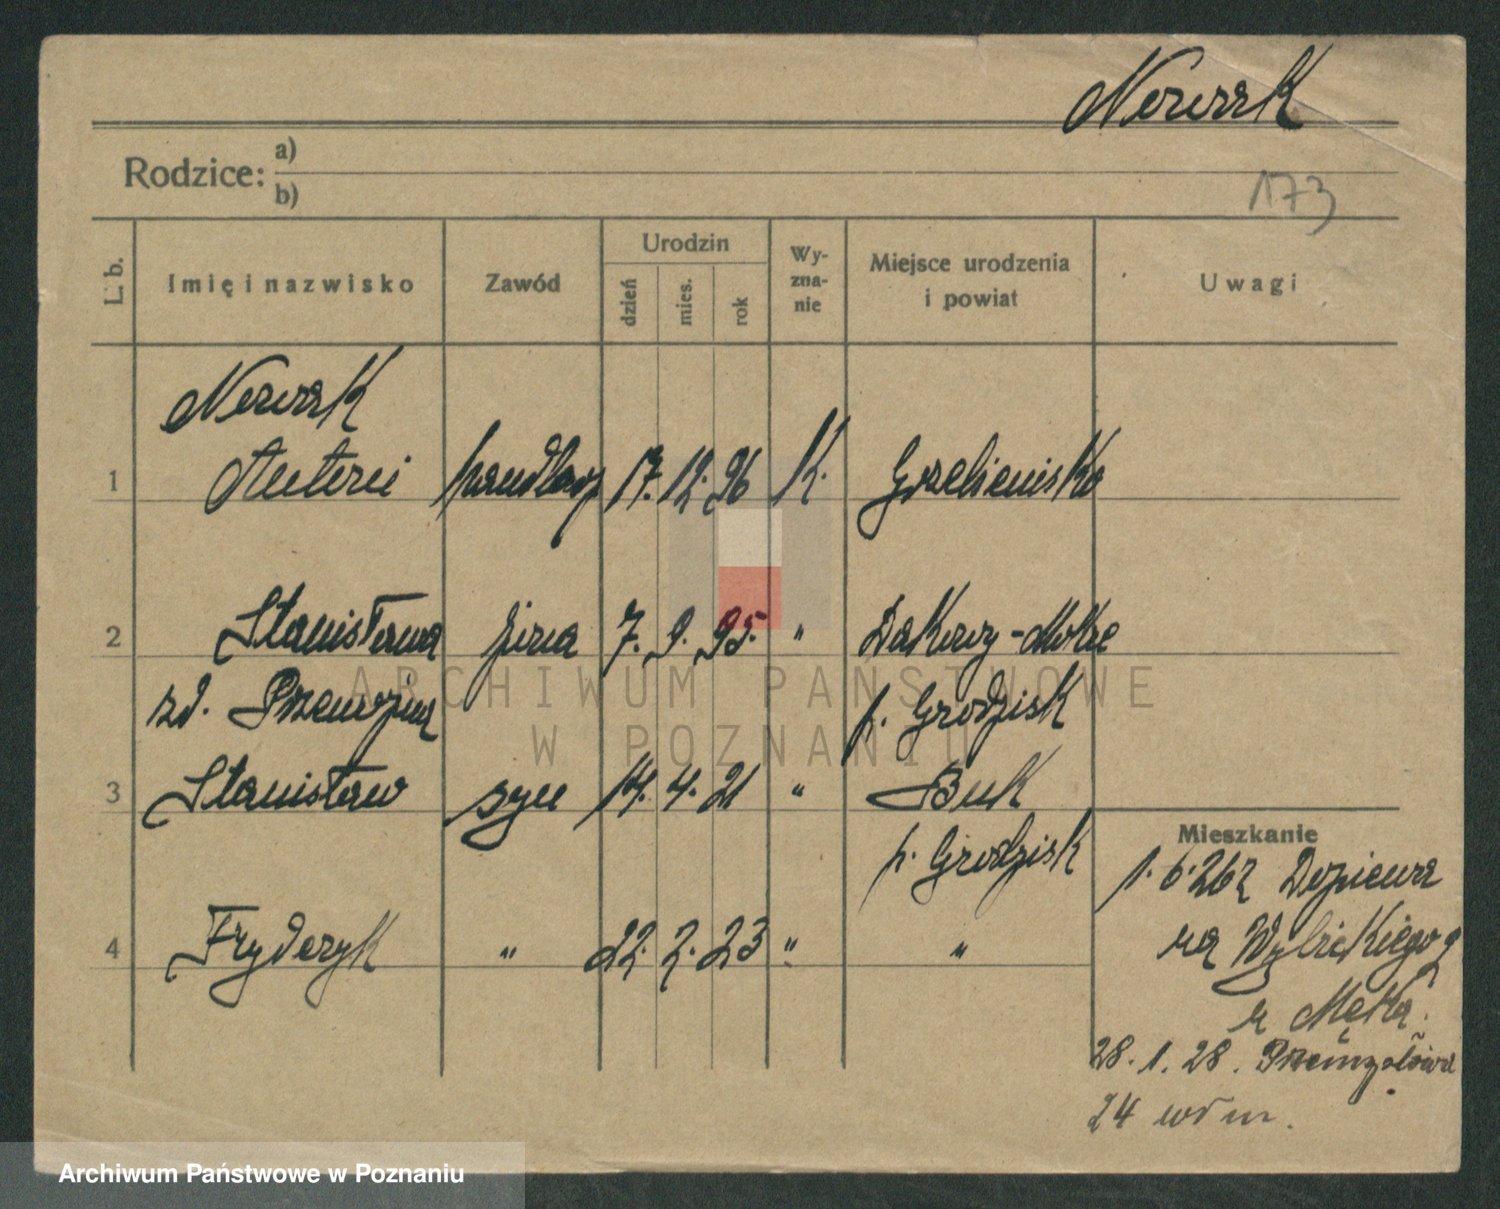 Nowak
Rodzice: a)
b)
173
L. b.
Imię i nazwisko
Zawód
Urodzin
dzień
mies.
rok
Wy-
zna-
nie
Miejsce urodzenia
i powiat
Uwagi
Nowak
1 Antoni handlarz 17. 12. 96 K. Grzebienisko
2 Stanisława żona 7. 9. 95. " Dakowy-Mokre
zd. p. Grodzisk
3 Stanisław syn 14. 4. 21 " Buk
p. Grodzisk
4 Fryderyk " 22. 2. 23 " "
Mieszkanie
1. 6. 26 z Dopiewa
na Wybickiego 9
u
28. 1. 28. Przemysłowa
24 wdm.
ARCHIWUM PAŃSTWOWE
W POZNANIU
Archiwum Państwowe w Poznaniu